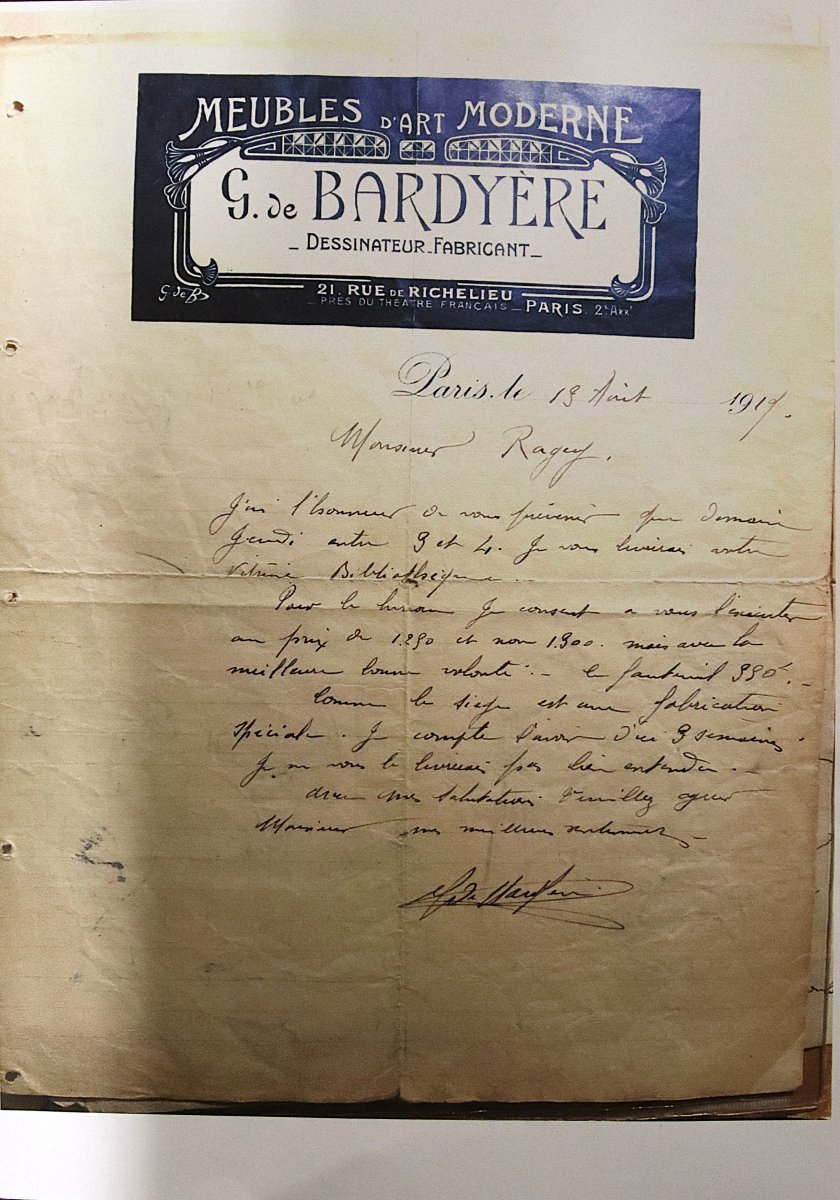 MEUBLES D'ART MODERNE
G. de BARDYÈRE
_ DESSINATEUR_FABRICANT_
G de B
21. RUE DE RICHELIEU
_ PRÈS DU THÉATRE FRANÇAIS _ PARIS. 2e ARRt
Paris, le 13 Août 191
Monsieur Raguy.
J'ai l'honneur de vous prévenir que demain
Jeudi entre 3 et 4. Je vous livrerai votre
Vitrine Bibliothèque
Pour le bureau Je consent a vous l'exécuter
au prix de 1.250 et non 1.300. mais avec la
meilleure bonne volonté. _ le fauteuil 330f. _
Comme le siège est une fabrication
spéciale. Je compte l'avoir d'ici 3 semaines.
Je ne vous le livrerais pas bien entendu. _
avec mes salutations Veuillez agréer
Monsieur mes meilleurs sentiments _